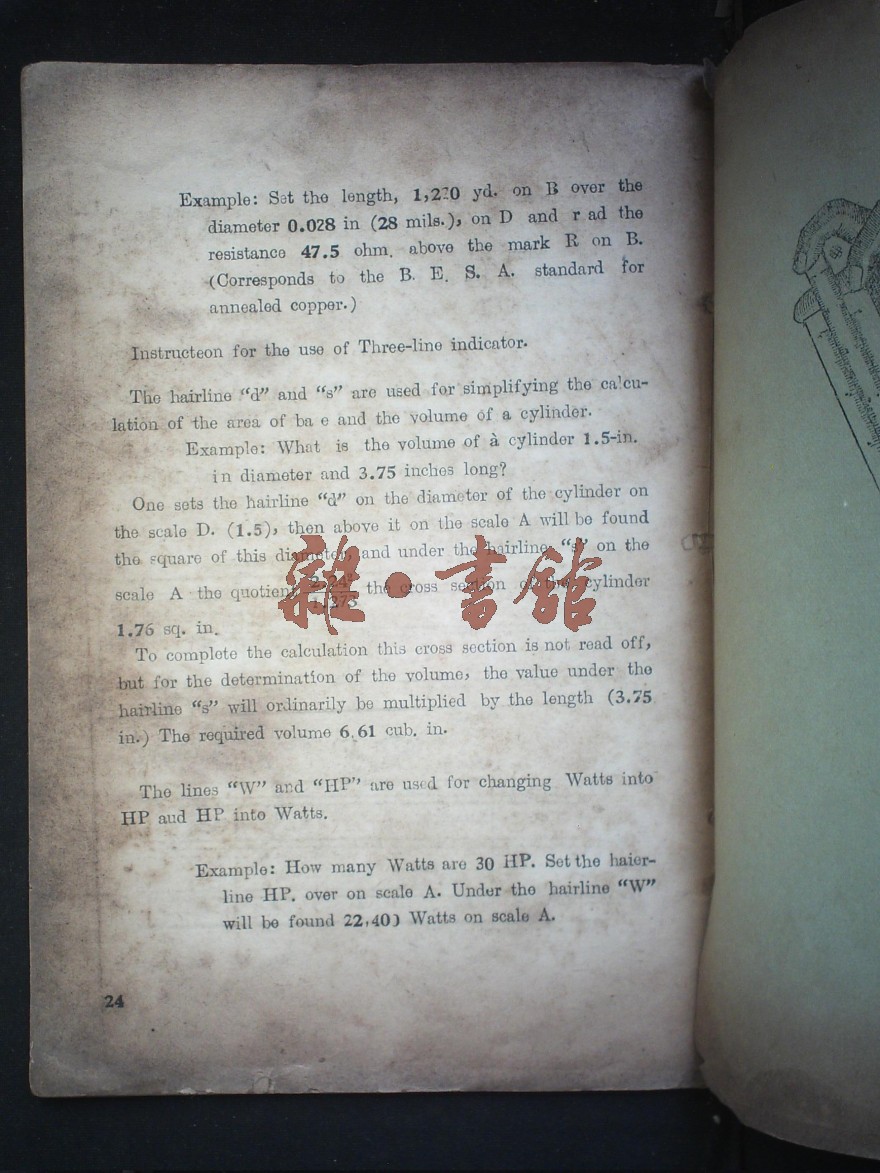 Example: Set the length, 1,220 yd. on B over the
diameter 0.028 in (28 mils.), on D and r ad the
resistance 47.5 ohm. above the mark R on B.
(Corresponds to the B. E. S. A. standard for
annealed copper.)
Instructeon for the use of Three-line indicator.
The hairline “d” and “s” are used for simplifying the calcu-
lation of the area of ba e and the volume of a cylinder.
Example: What is the volume of à cylinder 1.5-in.
in diameter and 3.75 inches long?
One sets the hairline “d” on the diameter of the cylinder on
the scale D. (1.5), then above it on the scale A will be found
the square of this diameter, and under the hairline “s” on the
scale A the quotient 2.247/1.273 the cross section of the cylinder
1.76 sq. in.
To complete the calculation this cross section is not read off,
but for the determination of the volume, the value under the
hairline “s” will ordinarily be multiplied by the length (3.75
in.) The required volume 6.61 cub. in.
The lines “W” and “HP” are used for changing Watts into
HP aud HP into Watts.
Example: How many Watts are 30 HP. Set the haier-
line HP. over on scale A. Under the hairline “W”
will be found 22,400 Watts on scale A.
24
雜·書館